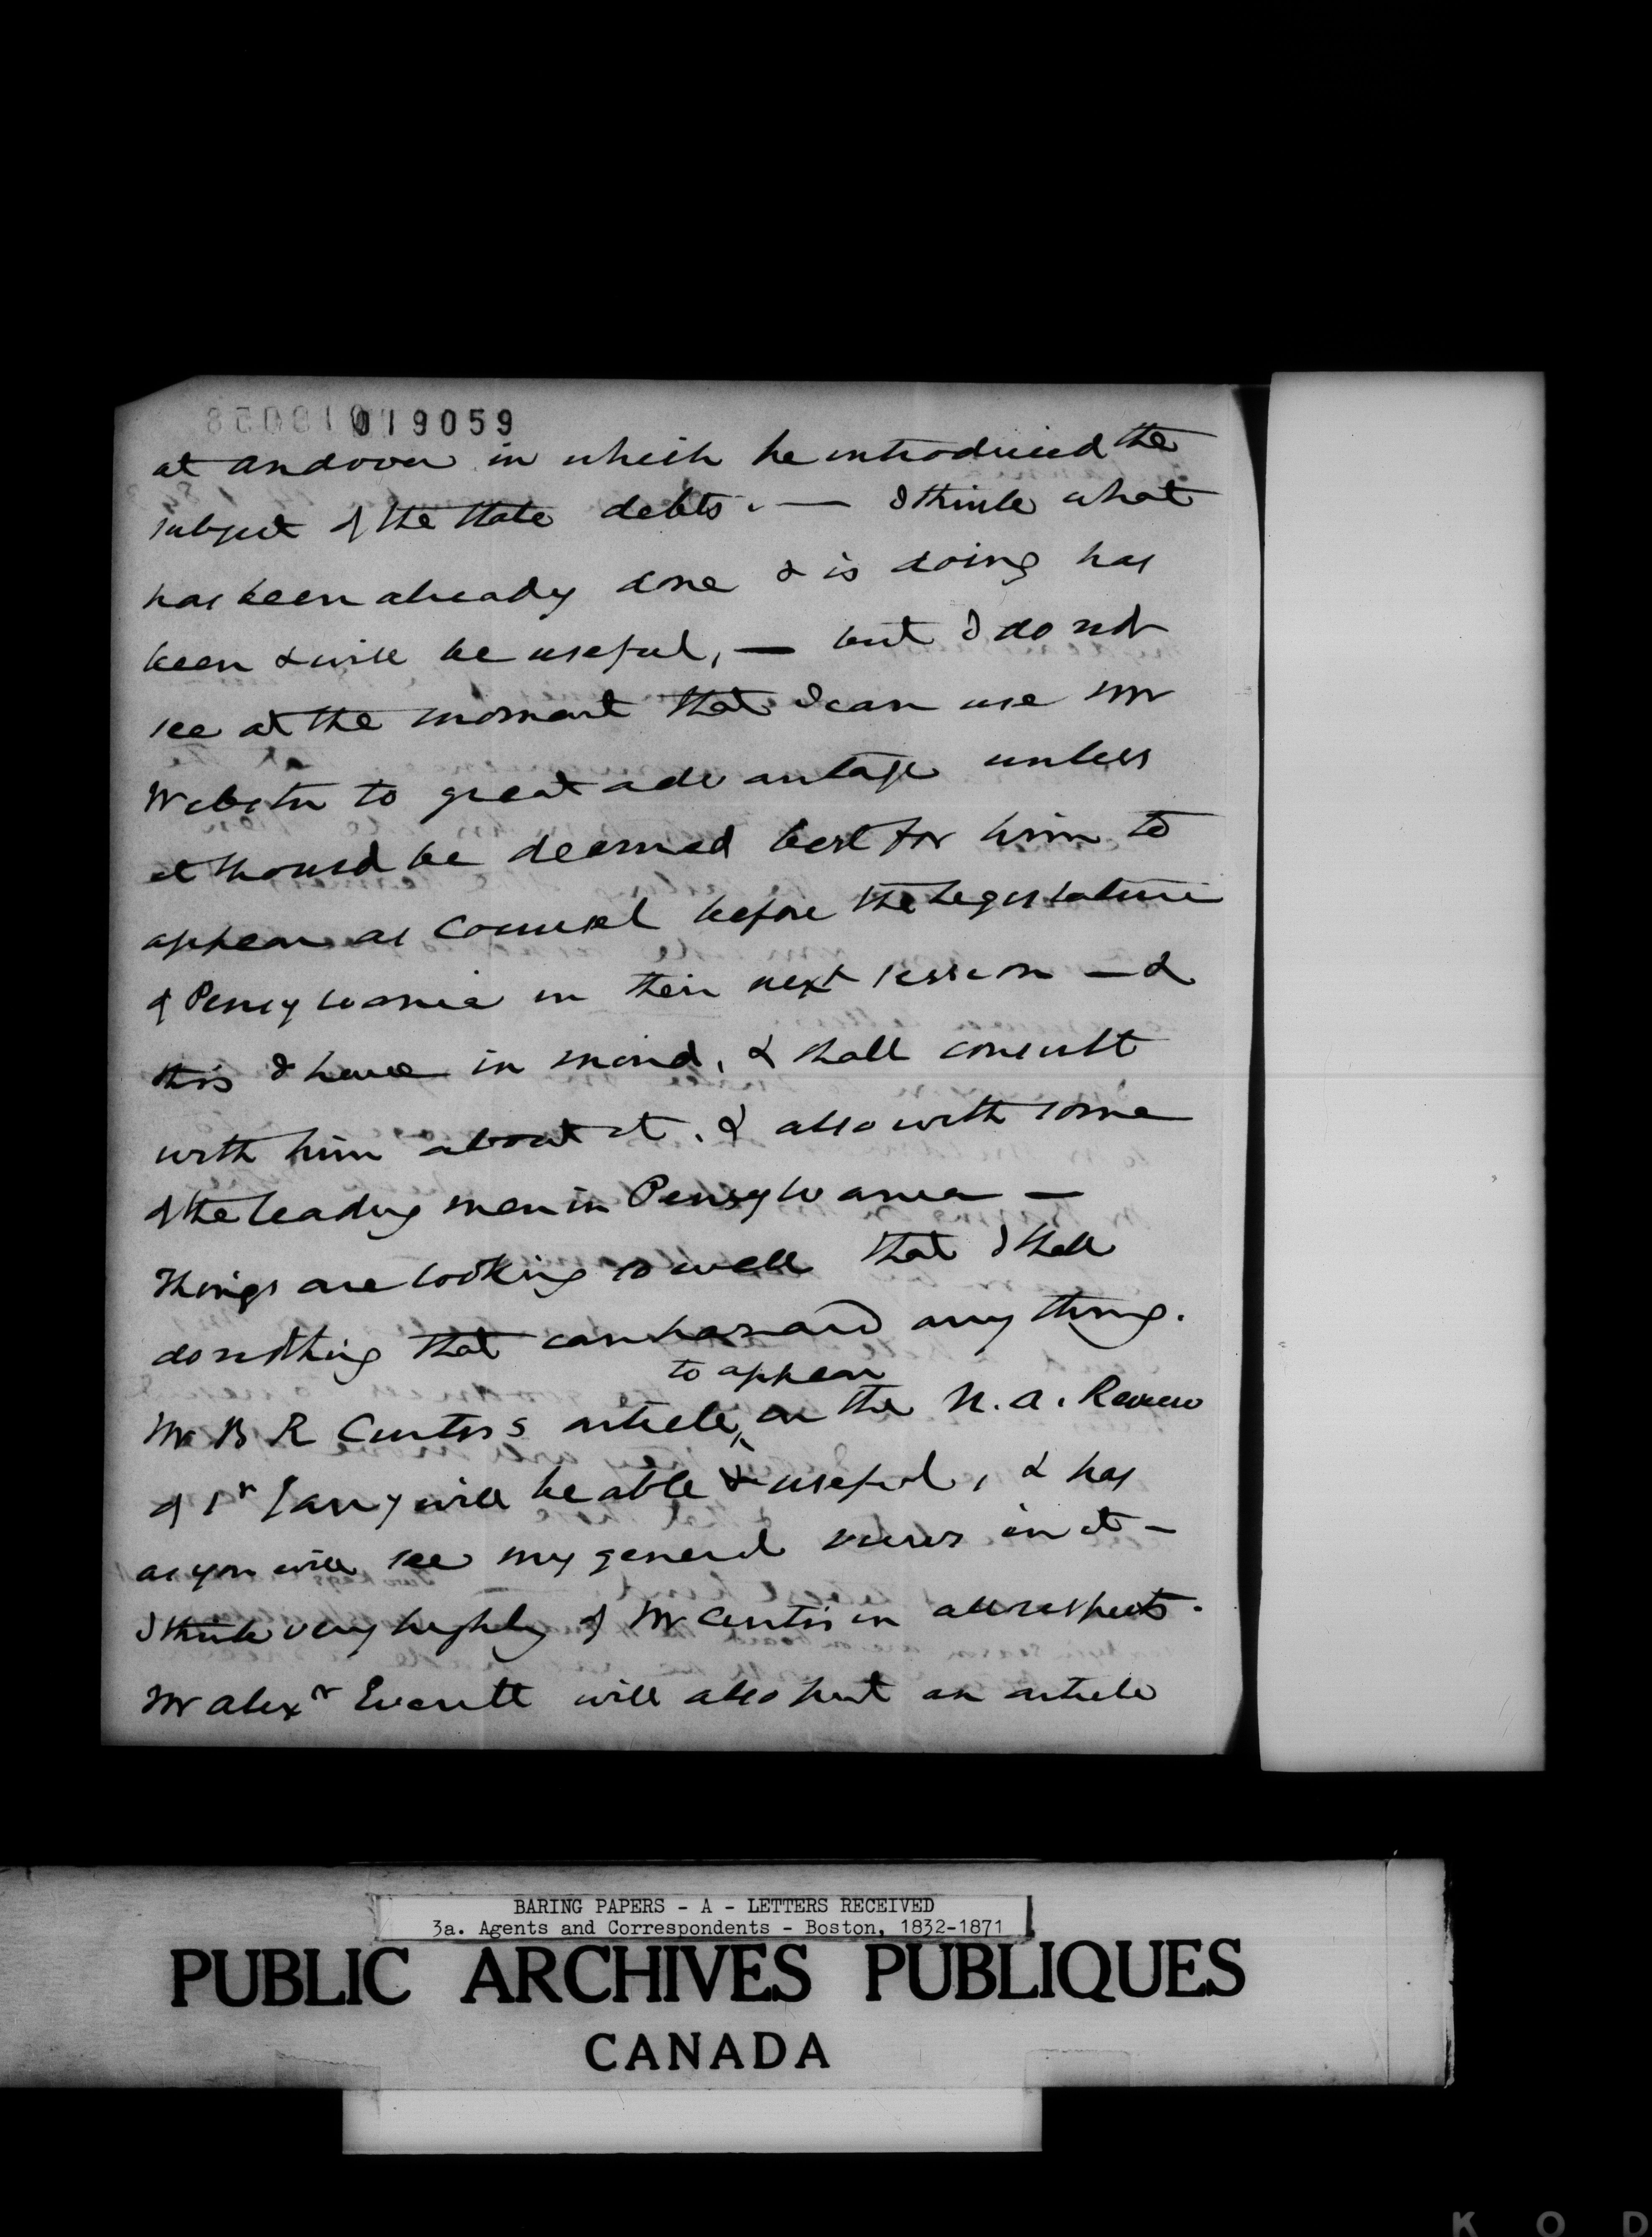 019059
at Andover in which he introduced the
subject of the State debts. — I think what
has been already done & is doing has
been & will be useful, — but I do not
see at the moment that I can use Mr
Webster to great advantage unless
it should be deemed best for him to
appear as Counsel before the Legislature
of Pensylvania in their next session — &
this I have in mind, & shall consult
with him about it, & also with some
of the leading men in Pensylvania —
Things are looking so well that I shall
do nothing that can hazard any thing.
to appear
Mr B R Curtis's article in the N. A. Review
of 1st Jany will be able & useful, & has
as you will see my general views in it —
I think very highly of Mr Curtis in all respects.
Mr Alexr Everett will also put an article
BARING PAPERS - A - LETTERS RECEIVED
3a. Agents and Correspondents - Boston, 1832-1871
PUBLIC ARCHIVES PUBLIQUES
CANADA
K O D